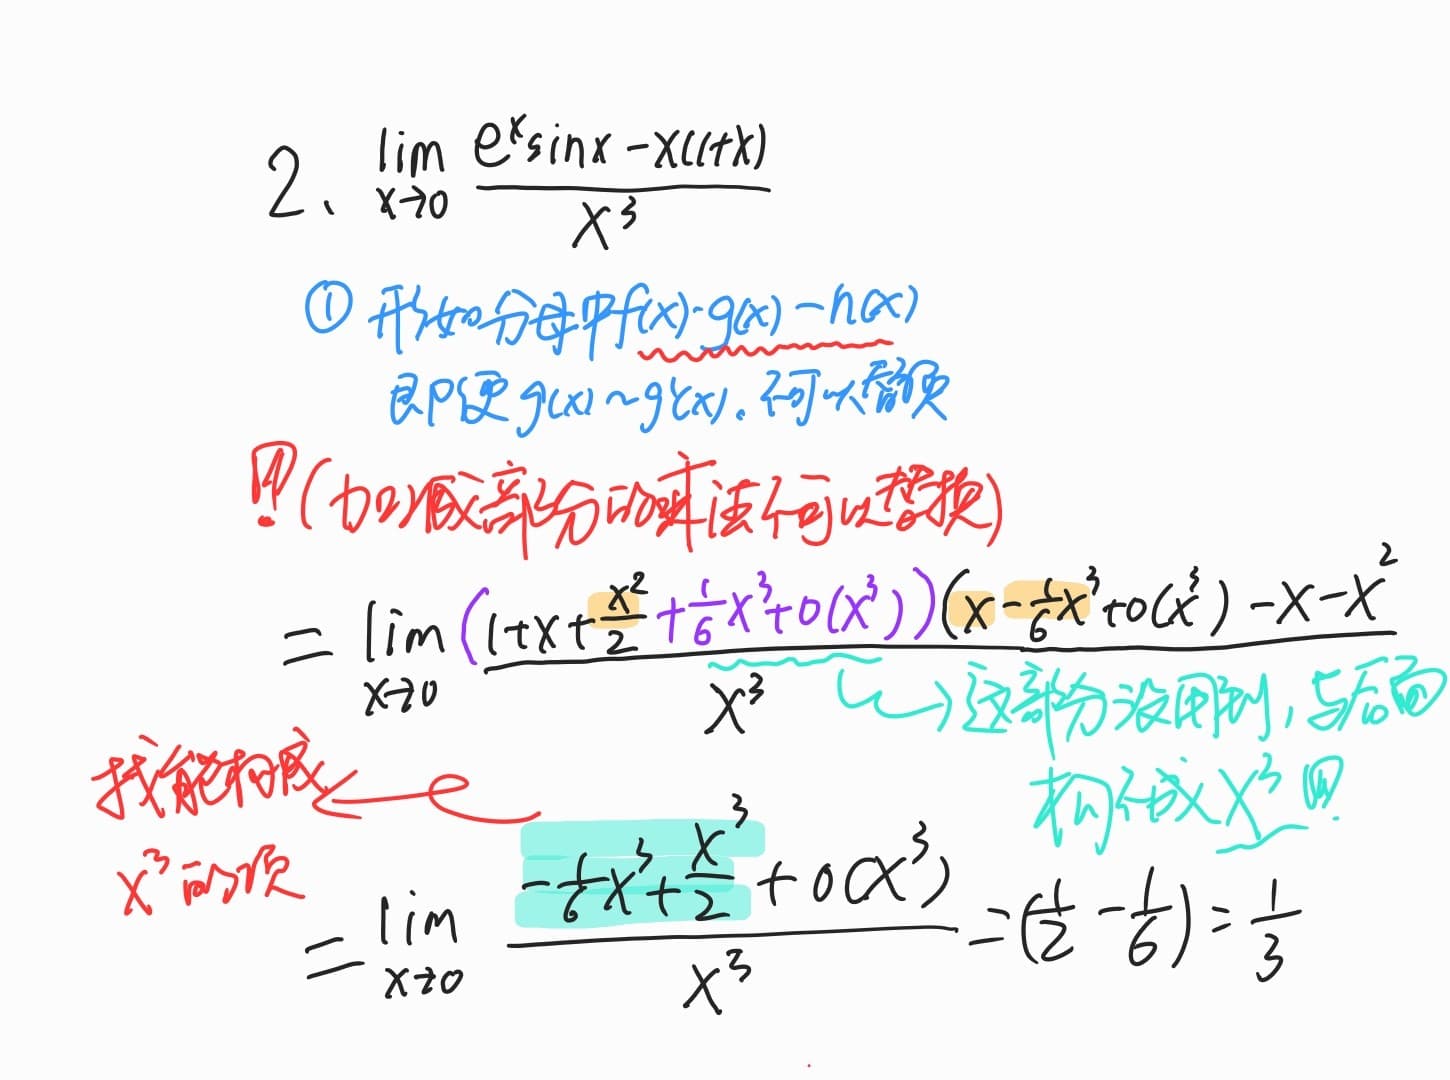 2、lim x→0 (e^x sinx - x(1+x)) / x^3
① 形如分母中f(x)·g(x)-h(x)
即便g(x)~g'(x).不可以替换
!(加减部分的乘法不可以替换)
= lim x→0 ((1+x+x^2/2+1/6x^3+o(x^3))(x-1/6x^3+o(x^3)-x-x^2) / x^3
→这部分没用到,与后面
构不成x^3!
找能构成
x^3的项
= lim x→0 (-1/6x^3+x^3/2+o(x^3)) / x^3 = (1/2-1/6) = 1/3